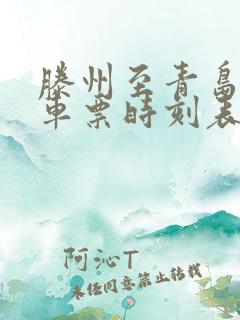 滕州至青岛
车票时刻表
阿沁T
未经同意禁止转载